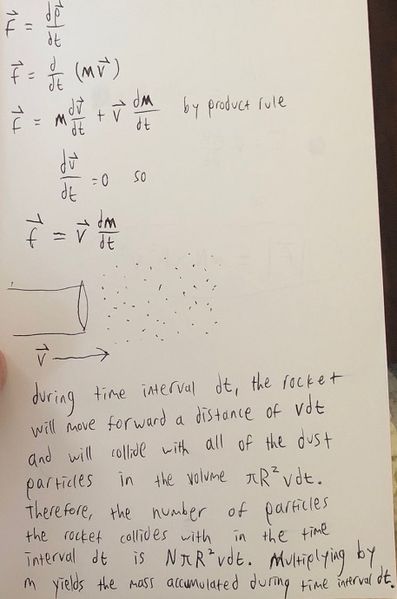 f⃗ = dp⃗/dt
f⃗ = d/dt (mv⃗)
f⃗ = m dv⃗/dt + v⃗ dm/dt by product rule
dv⃗/dt = 0 so
f⃗ = v⃗ dm/dt
v⃗ →
during time interval dt, the rocket
will move forward a distance of vdt
and will collide with all of the dust
particles in the volume πR²vdt.
Therefore, the number of particles
the rocket collides with in the time
interval dt is NπR²vdt. Multiplying by
m yields the mass accumulated during time interval dt.